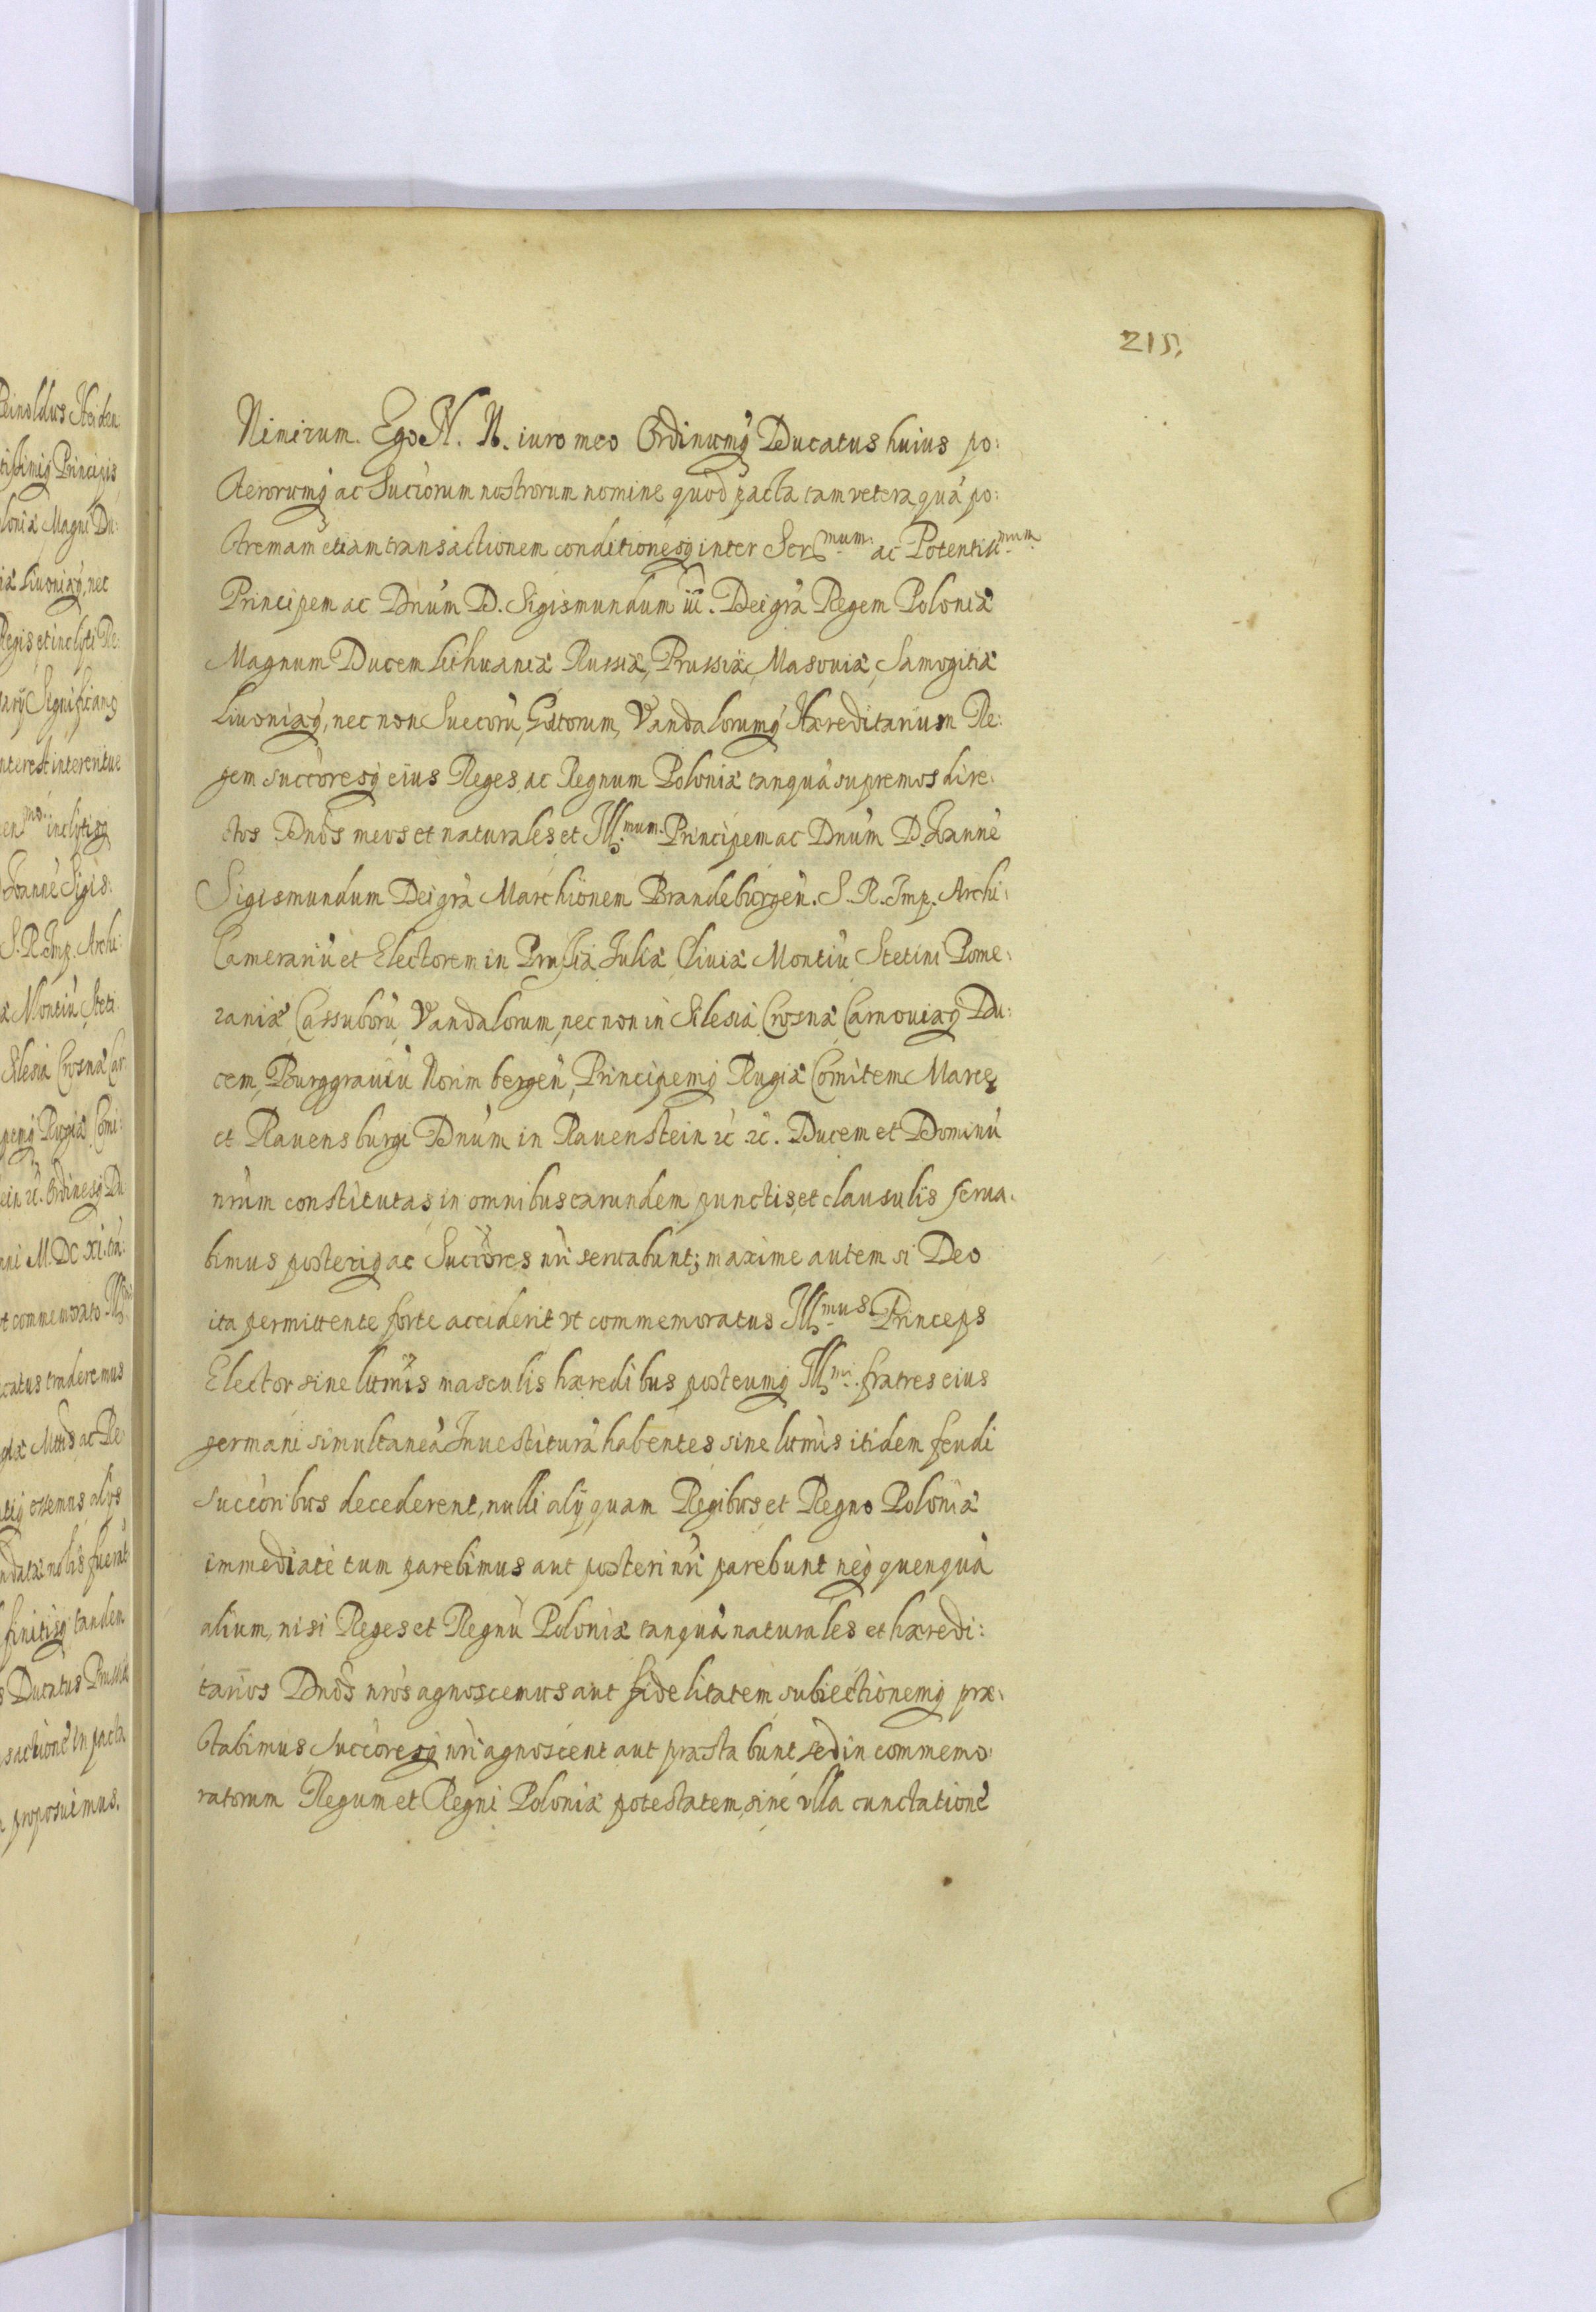 215.
Nimirum. Ego N. N. iuro meo Ordinumq̃ Ducatus huius po:
sterorumq̃ ac Succ̃orum nostrorum nomine quod pacta tam vetera quã po:
stremam etiam transactionem conditionesq̃ inter Ser^mum. ac Potentiss^mum.
Principem ac Dnũm D. Sigismundum iii. Dei grã Regem Poloniæ
Magnum Ducem Lithuaniæ Russiæ, Prussiæ, Masouiæ, Samogitiæ
Liuoniæq̃, nec non Suecorũ, Gottorum, Vandalorumq̃ Hæreditarium Re:
gem succ̃oresq̃ eius Reges, ac Regnum Poloniæ tanquã supremos dire:
ctos Dnõs meos et naturales et Ill^mum. Principem ac Dnũm D. Joannẽ
Sigismundum Dei grã Marchionem Brandeburgeñ. S. R. Imp. Archi:
Camerariũ et Electorem in Prussia Juliæ Cliuiæ Montiũ Stetini Pome:
raniæ Cassuborũ Vandalorum, nec non in Silesia Crosnæ Carnouiæq̃ Du:
cem, Burggrauiũ Norimbergeñ, Principemq̃ Rugiæ Comitem Marcę
et Rauensburgi Dnũm in Rauenstein ꝛc̃ ꝛc̃. Ducem et Dominũ
nr̃um constitutas, in omnibus earundem punctis, et clausulis serua:
bimus posteriq̃ ac Succ̃ores nr̃i seruabunt; maxime autem si Deo
ita permittente forte acciderit vt commemoratus Ill^mus. Princeps
Elector sine ltĩmis masculis hæredibus posteumq̃ Ill^mi. fratres eius
germani simultaneã Inuestiturã habentes sine ltĩmis itidem feudi
succ̃oribus decederent, nulli alij, quam Regibus, et Regno Poloniæ
immediatè tum parebimus aut posteri nr̃i parebunt neq̃ quenquã
alium, nisi Reges et Regnũ Poloniæ tanquã naturales et hæredi:
tarios Dnõs nr̃os agnoscemus aut fidelitatem subiectionemq̃ præ:
stabimus, succ̃oresq̃ nr̃i agnoscent aut præstabunt, sed in commemo:
ratorum Regum et Regni Poloniæ potestatem, sine vlla cunctationẽ